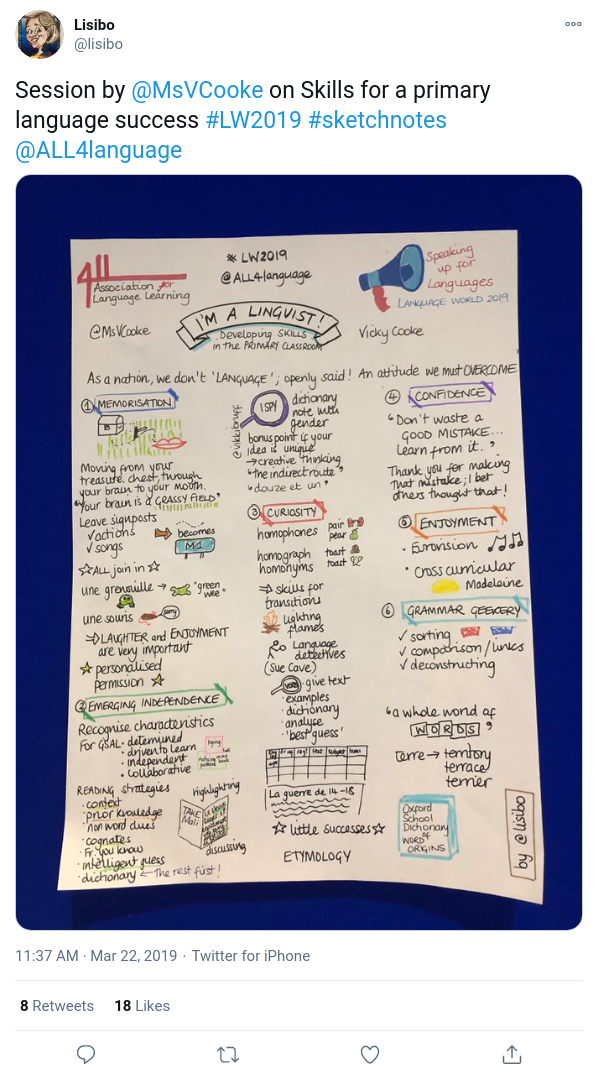 Lisibo
@lisibo
Session by @MsVCooke on Skills for a primary
language success #LW2019 #sketchnotes
@ALL4language
4ll
Association for
Language Learning
* LW2019
@ALL4language
Speaking
up for
Languages
LANGUAGE WORLD 2019
@MsVCooke
I'M A LINGUIST!
Developing SKILLS
in the PRIMARY CLASSROOM
Vicky Cooke
As a nation, we don't 'LANGUAGE'; openly said! An attitude we must OVERCOME
① MEMORISATION
Moving from your
treasure chest, through
your brain to your mouth.
"Your brain is a GRASSY FIELD"
Leave signposts
✓actions
✓songs
becomes
M1
☆ALL join in☆
une grenouille → "green
wee"
une souris sorry
⇒LAUGHTER and ENJOYMENT
are very important
☆ personalised
permission ☆
② EMERGING INDEPENDENCE
Recognise characteristics
For GSAL· determined
· driven to learn
· independent
· collaborative
READING strategies
· context
· prior knowledge
non word clues
· cognates
· Fr. you know
· intelligent guess
· dictionary ← The rest first!
highlighting
TAKE
Mali
discussing
@vikkibruff
ISPY
dictionary
note with
gender
bonus point if your
idea is unique
→creative thinking
"the indirect route"
"douze et un"
③ CURIOSITY
homophones pair
pear
homograph toast
homonyms toast
⇒ skills for
transitions
lighting
flames
Language
detectives
(Sue Cave)
· give text
· examples
· dictionary
· analyse
· 'best guess'
La guerre de 14-18
☆ little successes ☆
ETYMOLOGY
④ CONFIDENCE
"Don't waste a
GOOD MISTAKE...
Learn from it."
Thank you for making
that mistake; I bet
others thought that!
⑤ ENJOYMENT
· Eurovision
· cross curricular
Madeleine
⑥ GRAMMAR GEEKERY
✓ sorting
✓ comparison/links
✓ deconstructing
"a whole world of
WORDS"
terre → territory
terrace
terrier
Oxford
School
Dictionary
of
WORD
ORIGINS
by @lisibo
11:37 AM · Mar 22, 2019 · Twitter for iPhone
8 Retweets 18 Likes